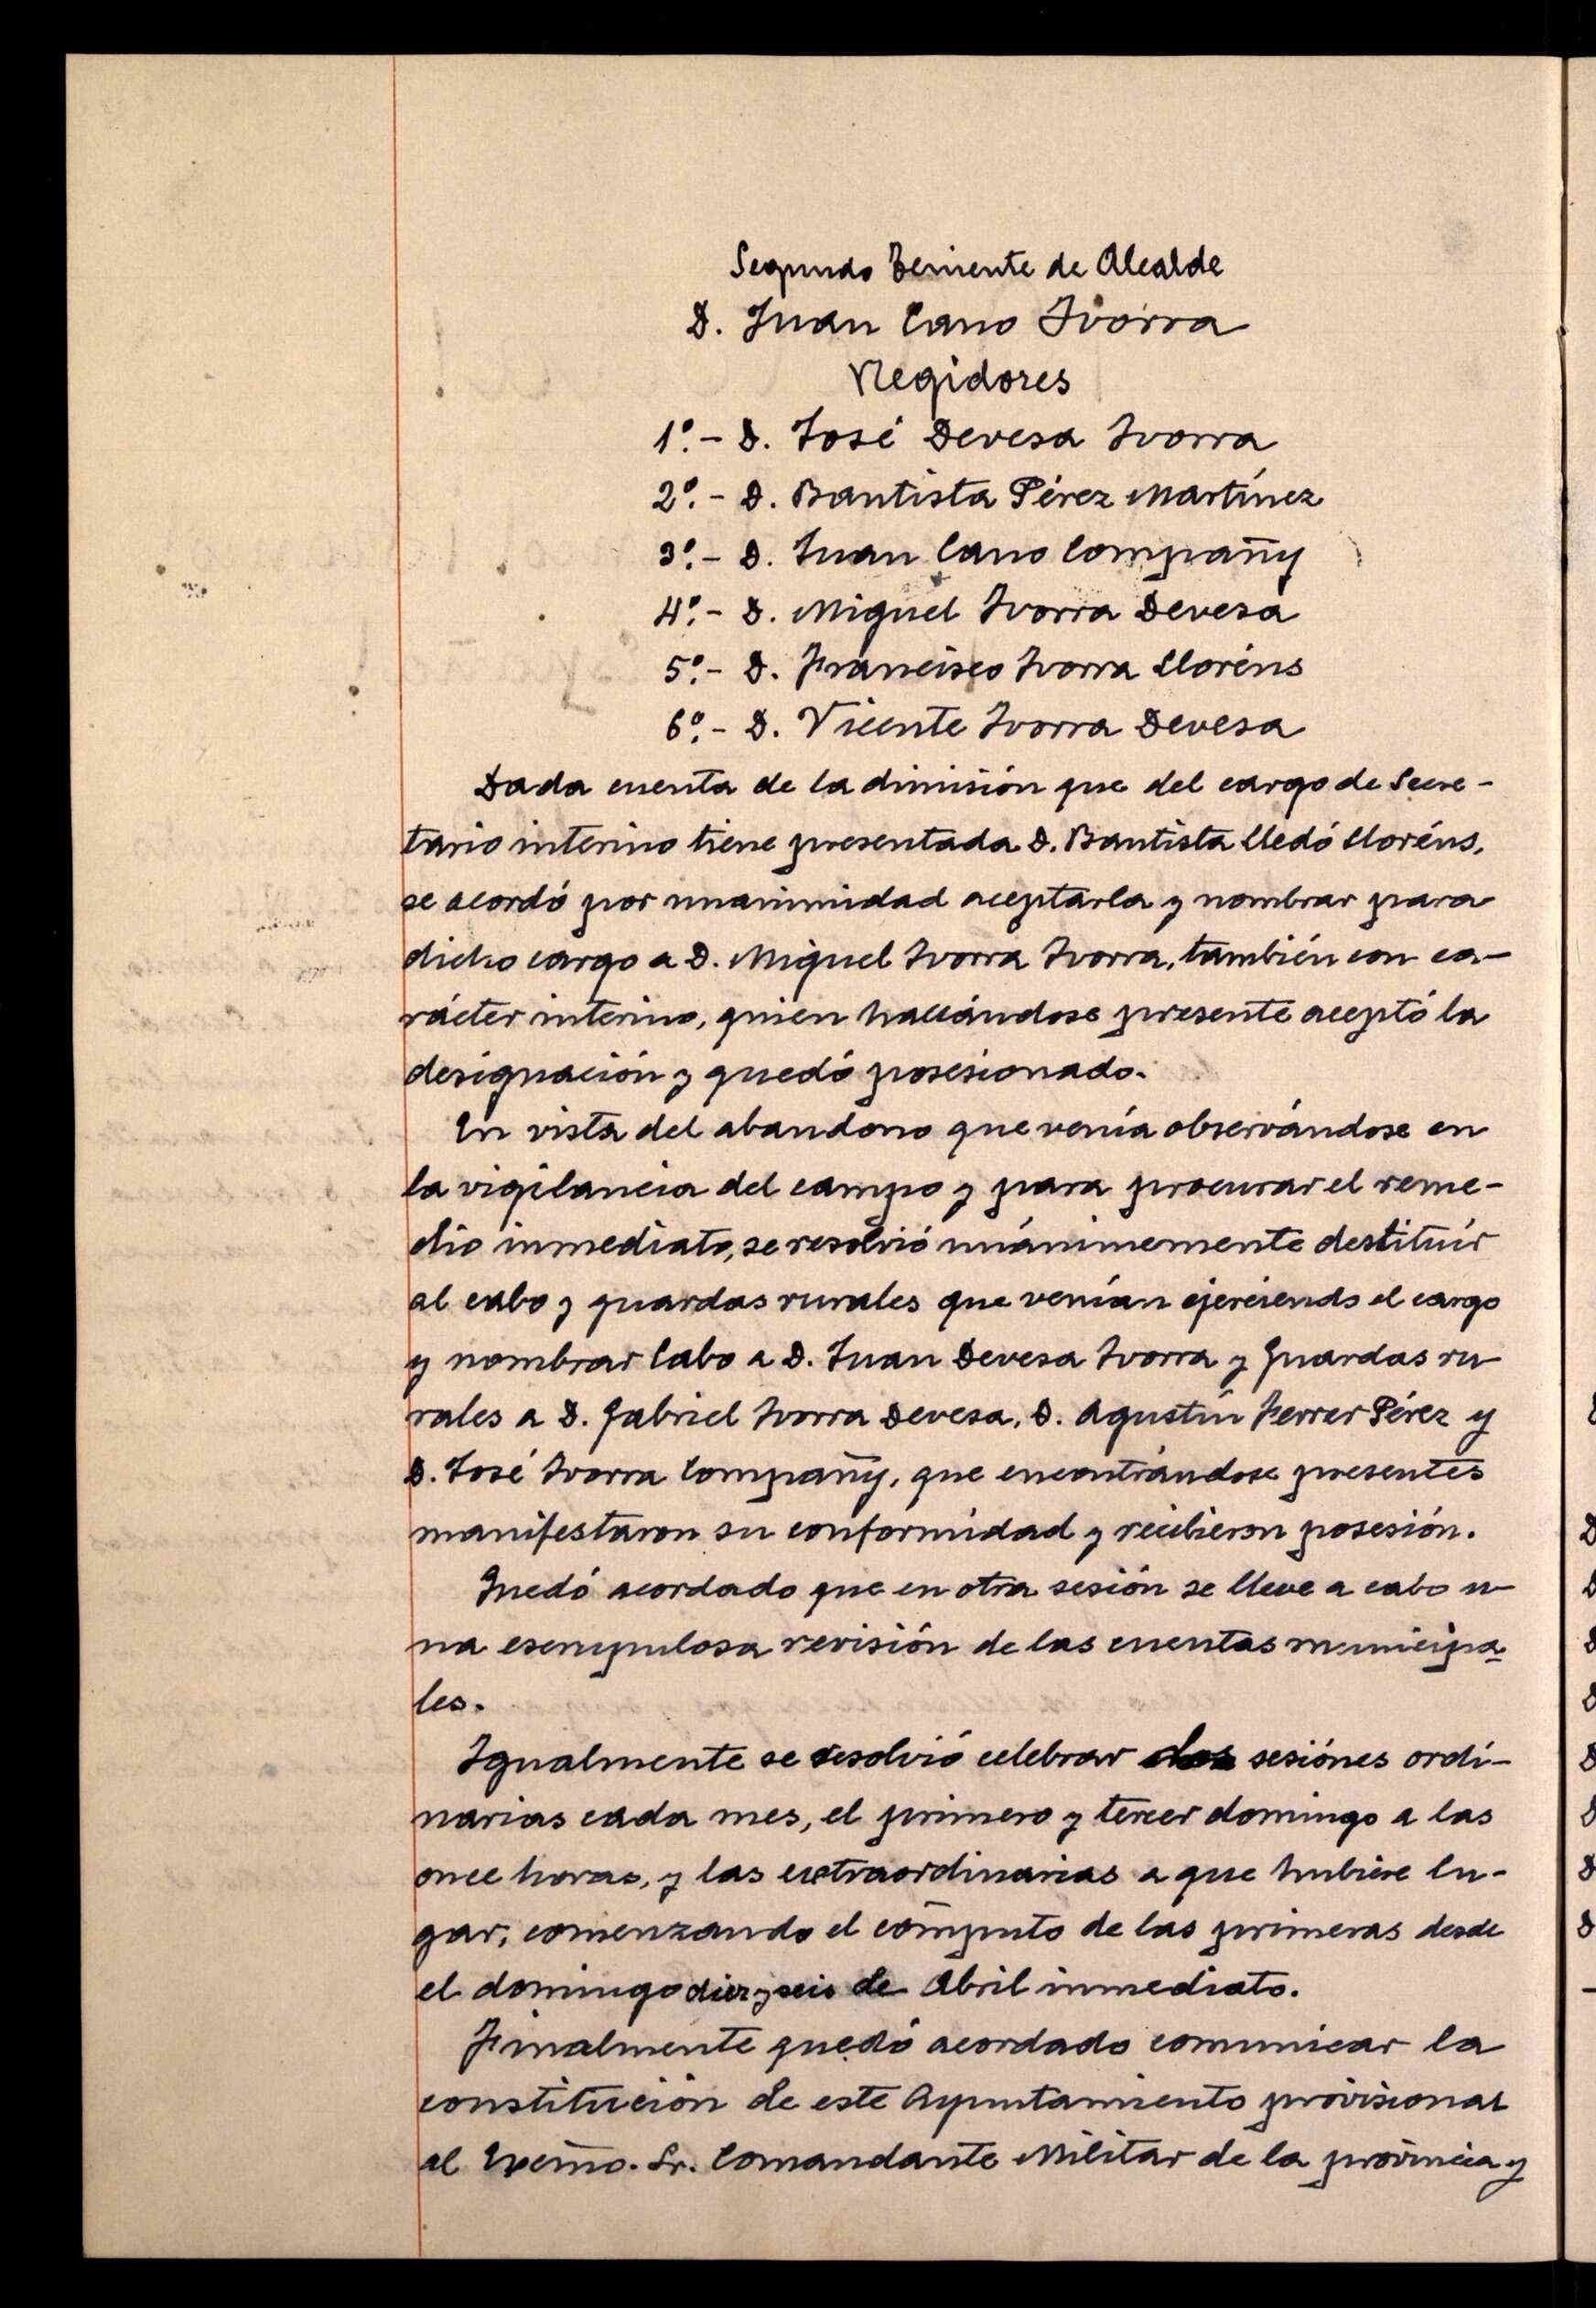 Segundo Teniente de Alcalde
D. Juan Cano Ivorra
Regidores
1º.- D. José Devesa Ivorra
2º.- D. Bautista Pérez Martínez
3º.- D. Juan Cano Compañy
4º.- D. Miguel Ivorra Devesa
5º.- D. Francisco Ivorra Lloréns
6º.- D. Vicente Ivorra Devesa
Dada cuenta de la dimisión que del cargo de Secre-
tario interino tiene presentada D. Bautista Lledó Lloréns,
se acordó por unanimidad aceptarla y nombrar para
dicho cargo a D. Miguel Ivorra Ivorra, también con ca-
rácter interino, quien hallándose presente aceptó la
designación y quedó posesionado.
En vista del abandono que venía observándose en
la vigilancia del campo y para procurar el reme-
dio inmediato, se resolvió unánimemente destituír
al cabo y guardas rurales que venían ejerciendo el cargo
y nombrar Cabo a D. Juan Devesa Ivorra y Guardas ru-
rales a D. Gabriel Ivorra Devesa, D. Agustín Ferrer Pérez y
D. José Ivorra Compañy, que encontrándose presentes
manifestaron su conformidad y recibieron posesión.
Quedó acordado que en otra sesión se lleve a cabo u-
na escrupulosa revisión de las cuentas municipa-
les.
Igualmente se resolvió celebrar dos sesiónes ordi-
narias cada mes, el primero y tercer domingo a las
once horas, y las extraordinarias a que hubiere lu-
gar, comenzando el cómputo de las primeras desde
el domingo diez y seis de Abril inmediato.
Finalmente quedó acordado comunicar la
constitución de este Ayuntamiento provisional
al Excmo. Sr. Comandante Militar de la provincia y